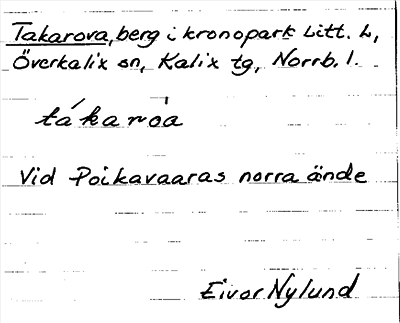 Takarova, berg i kronopark Litt. L,
Överkalix sn, Kalix tg, Norrb. l.
tákaròa
Vid Poikavaaras norra ände
Eivor Nylund